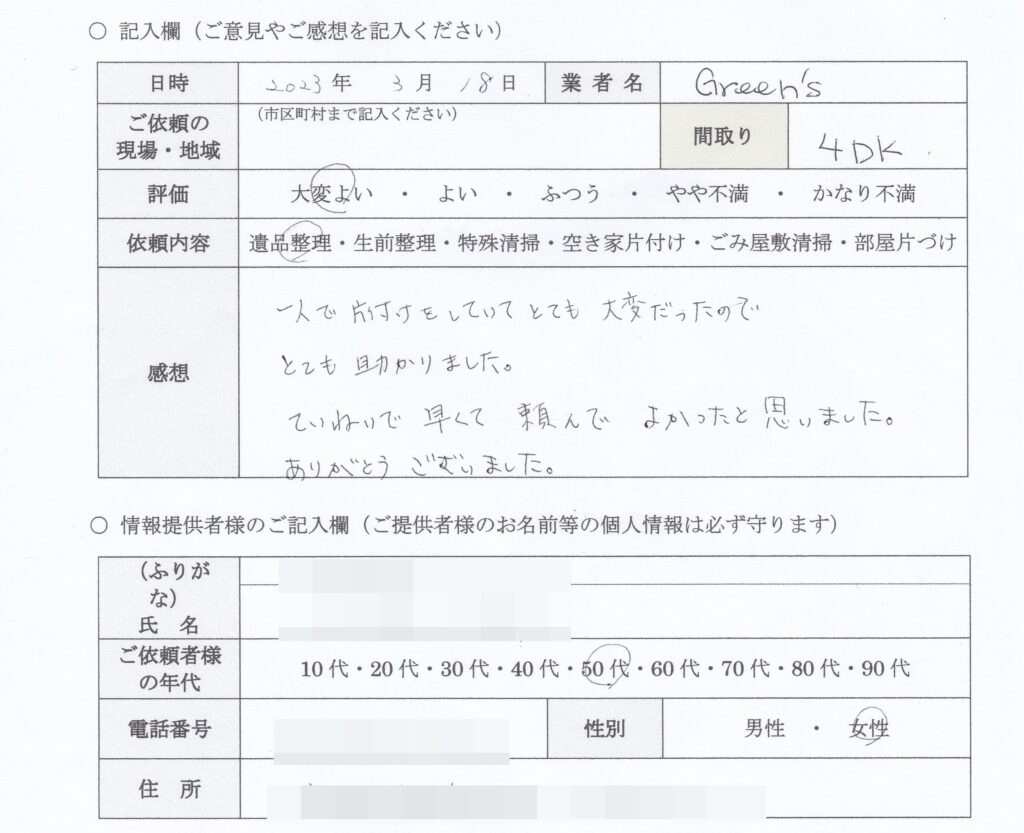 ○ 記入欄（ご意見やご感想を記入ください）
日時 2023年 3月 18日 業者名 Green's
ご依頼の現場・地域 （市区町村まで記入ください） 間取り 4DK
評価 大変よい ・ よい ・ ふつう ・ やや不満 ・ かなり不満
依頼内容 遺品整理・生前整理・特殊清掃・空き家片付け・ごみ屋敷清掃・部屋片づけ
感想
一人で片付けをしていてとても大変だったので
とても助かりました。
ていねいで早くて頼んでよかったと思いました。
ありがとうございました。
○ 情報提供者様のご記入欄（ご提供者様のお名前等の個人情報は必ず守ります）
（ふりがな）
氏 名
ご依頼者様の年代 10代・20代・30代・40代・50代・60代・70代・80代・90代
電話番号 性別 男性 ・ 女性
住 所